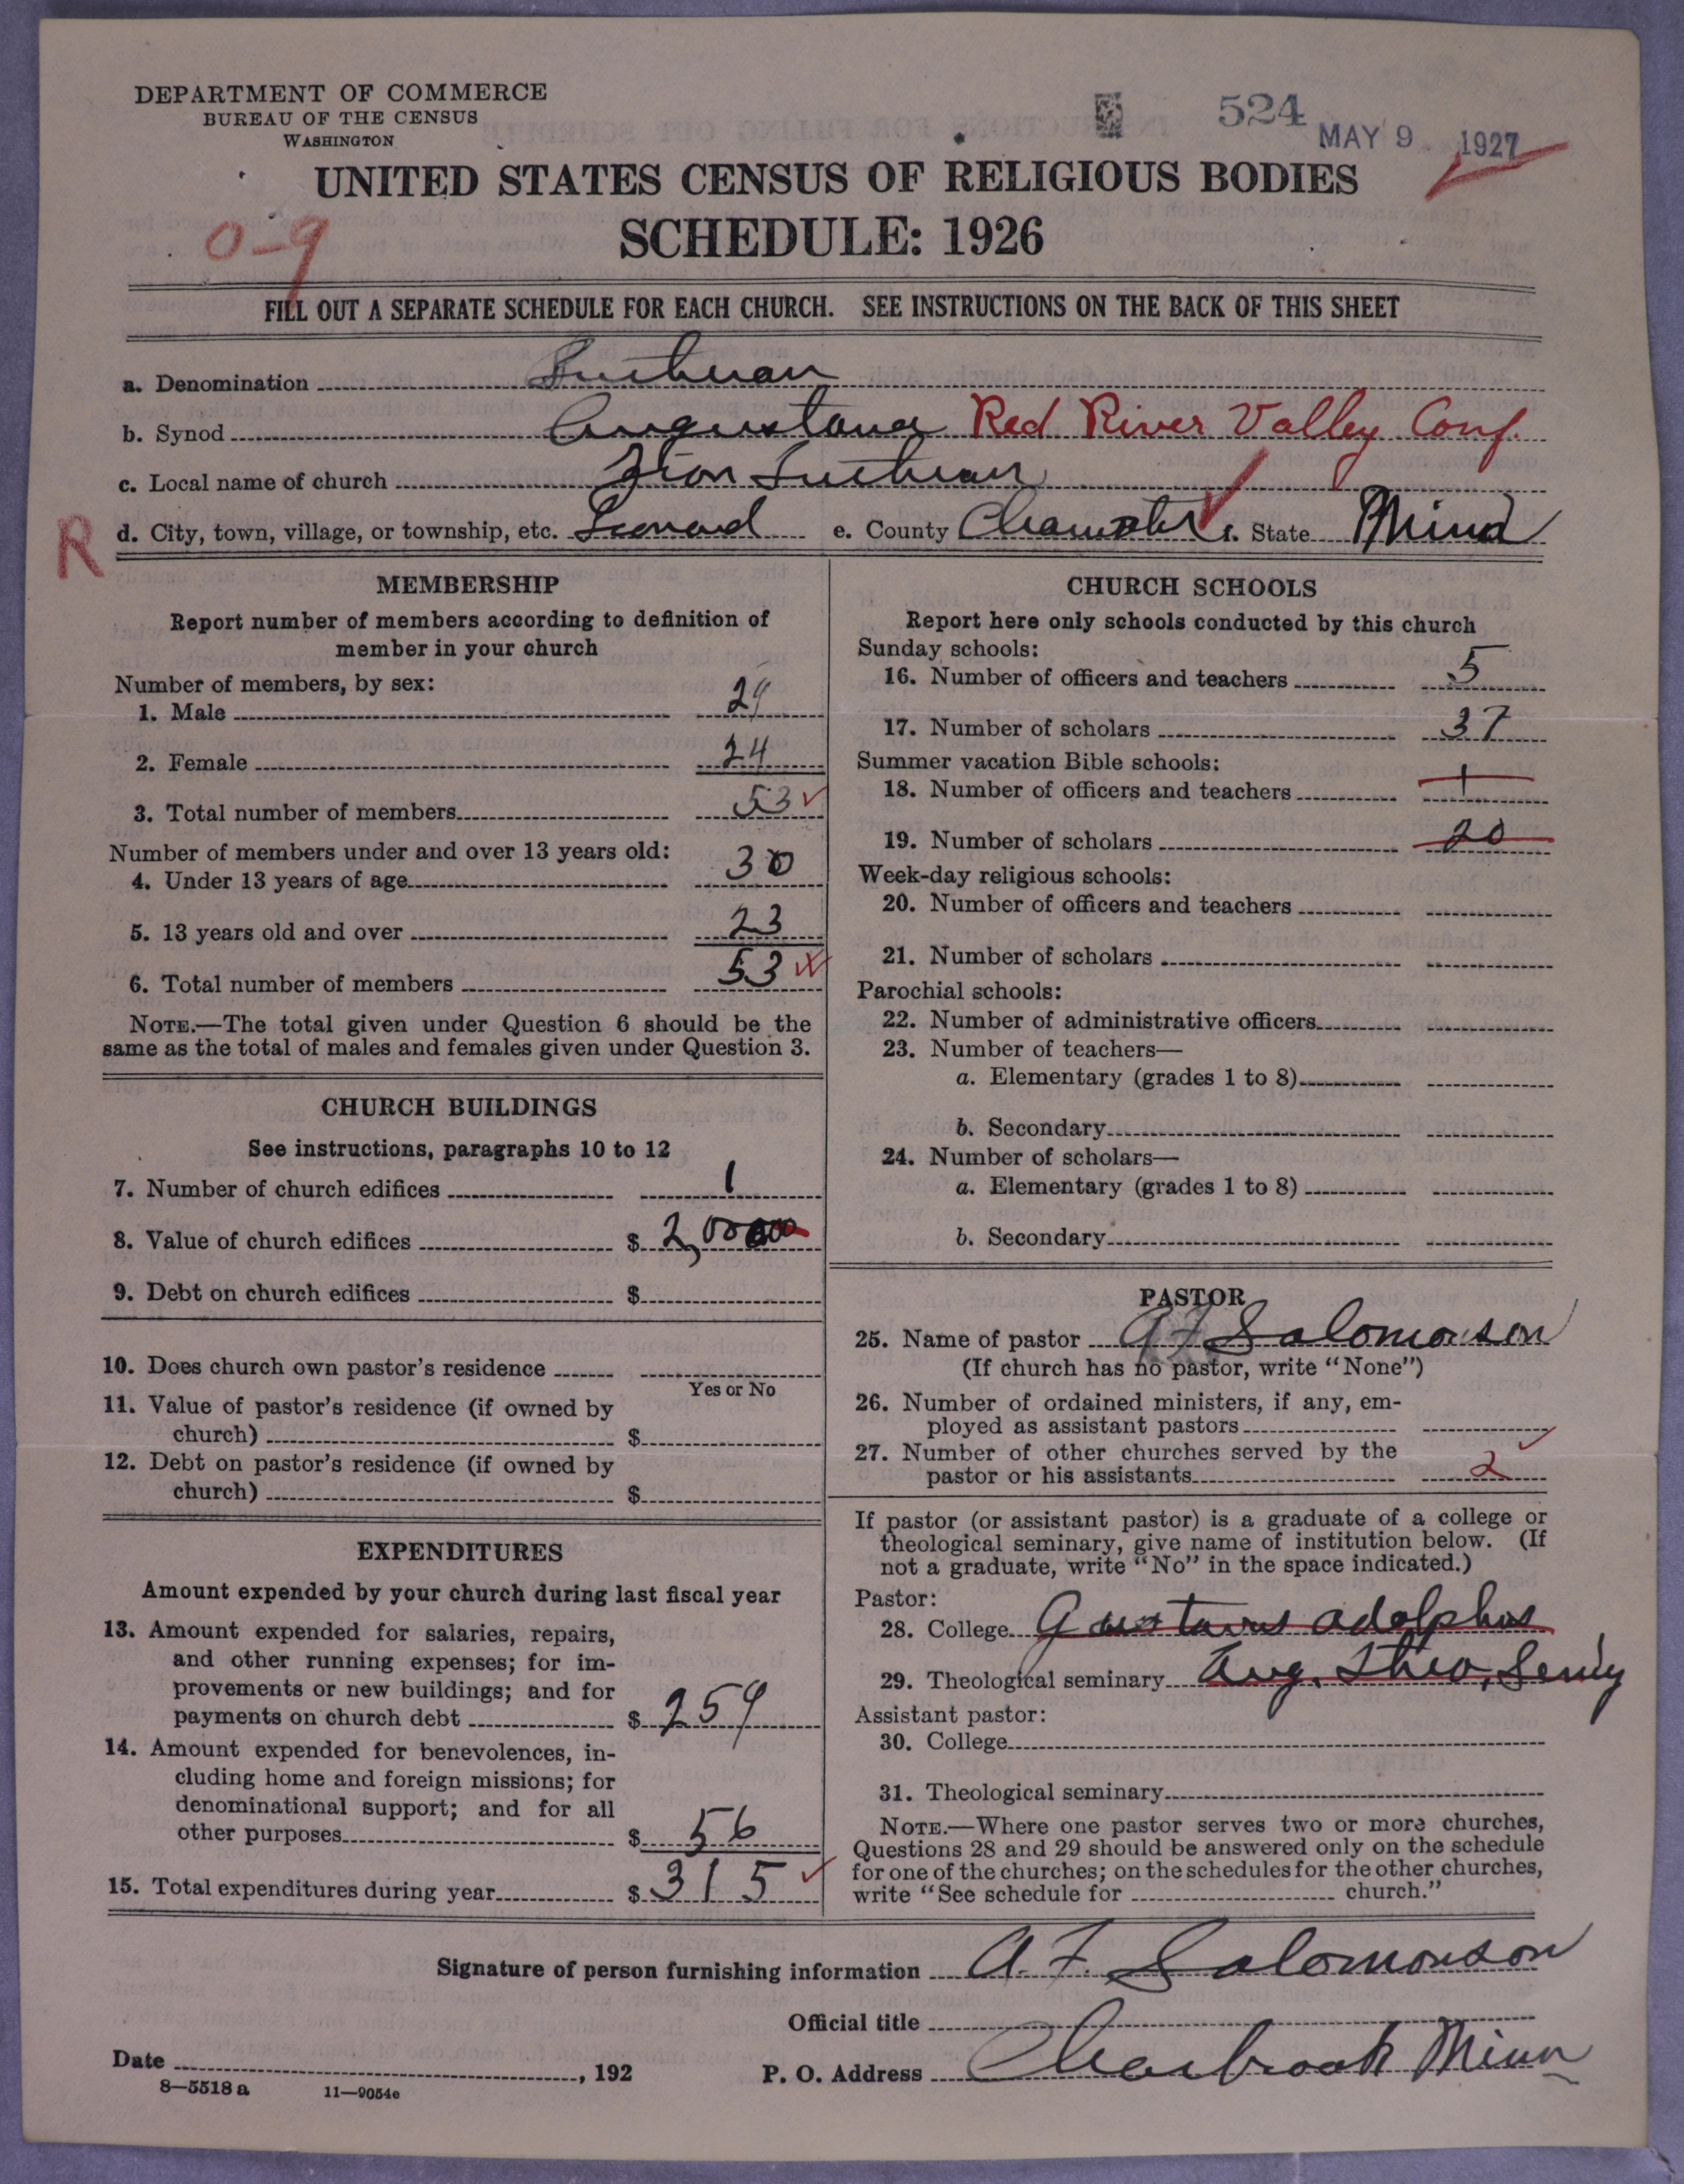 DEPARTMENT OF COMMERCE
BUREAU OF THE CENSUS
WASHINGTON
524
MAY 9 1927
UNITED STATES CENSUS OF RELIGIOUS BODIES
SCHEDULE: 1926
0-9
FILL OUT A SEPARATE SCHEDULE FOR EACH CHURCH. SEE INSTRUCTIONS ON THE BACK OF THIS SHEET
a. Denomination Lutheran
b. Synod Augustana Red River Valley Conf.
c. Local name of church Zion Lutheran
R
d. City, town, village, or township, etc. Leonard e. County Clearwater f. State Minn
MEMBERSHIP
Report number of members according to definition of
member in your church
Number of members, by sex:
1. Male 29
2. Female 24
3. Total number of members 53
Number of members under and over 13 years old:
4. Under 13 years of age 30
5. 13 years old and over 23
6. Total number of members 53
NOTE.—The total given under Question 6 should be the
same as the total of males and females given under Question 3.
CHURCH BUILDINGS
See instructions, paragraphs 10 to 12
7. Number of church edifices 1
8. Value of church edifices $ 2,00000
9. Debt on church edifices $
10. Does church own pastor's residence
Yes or No
11. Value of pastor's residence (if owned by
church) $
12. Debt on pastor's residence (if owned by
church) $
EXPENDITURES
Amount expended by your church during last fiscal year
13. Amount expended for salaries, repairs,
and other running expenses; for im-
provements or new buildings; and for
payments on church debt $ 259
14. Amount expended for benevolences, in-
cluding home and foreign missions; for
denominational support; and for all
other purposes $ 56
15. Total expenditures during year $ 315
CHURCH SCHOOLS
Report here only schools conducted by this church
Sunday schools:
16. Number of officers and teachers 5
17. Number of scholars 37
Summer vacation Bible schools:
18. Number of officers and teachers 1
19. Number of scholars 20
Week-day religious schools:
20. Number of officers and teachers
21. Number of scholars
Parochial schools:
22. Number of administrative officers
23. Number of teachers—
a. Elementary (grades 1 to 8)
b. Secondary
24. Number of scholars—
a. Elementary (grades 1 to 8)
b. Secondary
PASTOR
25. Name of pastor A F Salomonson
(If church has no pastor, write "None")
26. Number of ordained ministers, if any, em-
ployed as assistant pastors
27. Number of other churches served by the
pastor or his assistants 2
If pastor (or assistant pastor) is a graduate of a college or
theological seminary, give name of institution below. (If
not a graduate, write "No" in the space indicated.)
Pastor:
28. College Gustavus Adolphus
29. Theological seminary Aug. Theo, Semy
Assistant pastor:
30. College
31. Theological seminary
NOTE.—Where one pastor serves two or more churches,
Questions 28 and 29 should be answered only on the schedule
for one of the churches; on the schedules for the other churches,
write "See schedule for church."
Signature of person furnishing information A. F. Salomonson
Official title
Date , 192 P. O. Address Clearbrook Minn
8—5518 a 11—9054e